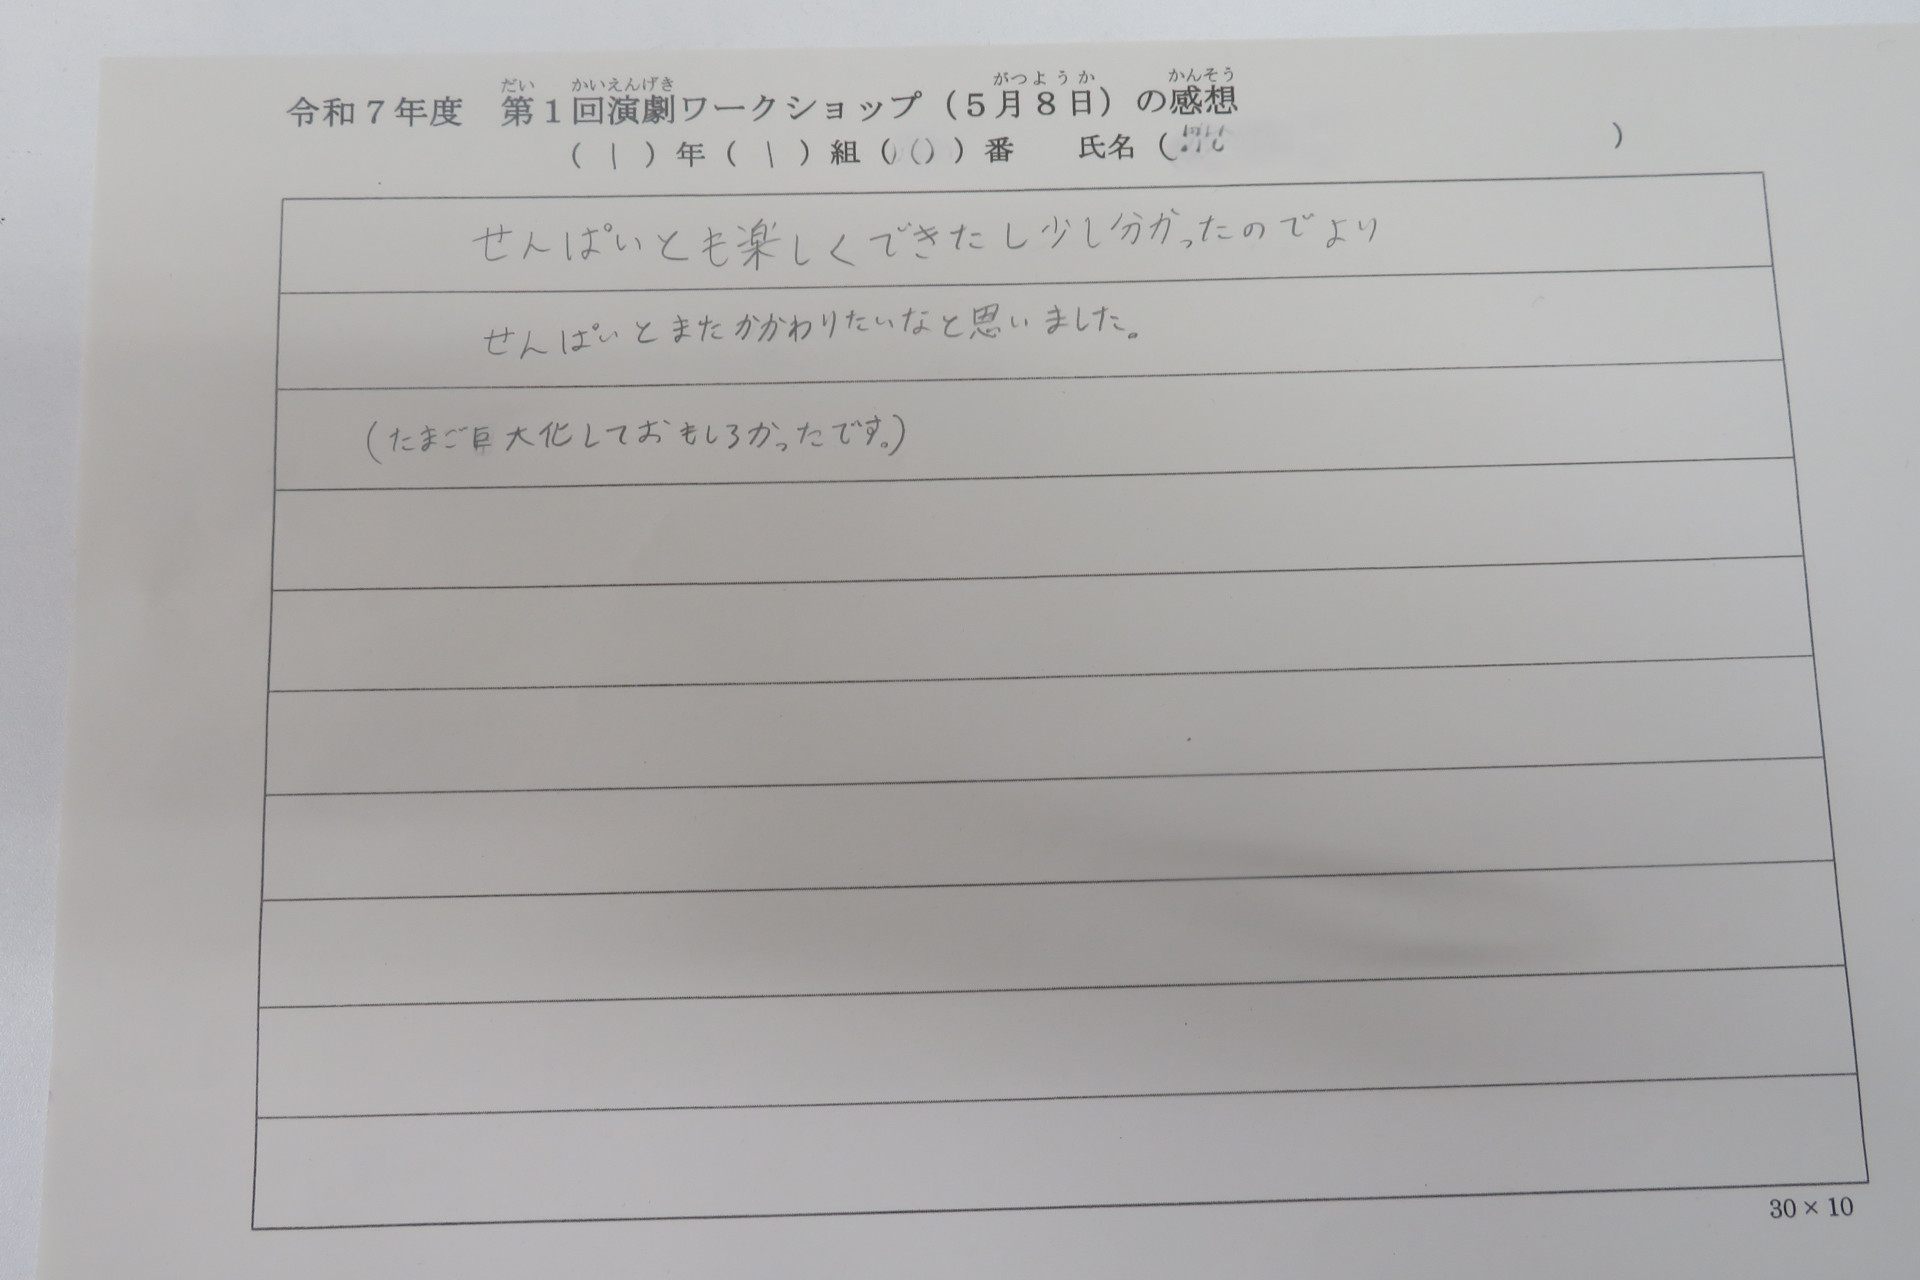 令和７年度　第１回演劇ワークショップ（５月８日）の感想
（１）年（１）組（　）番　氏名（　）
せんぱいとも楽しくできたし少し分かったのでより
せんぱいとまたかかわりたいなと思いました。
（たまご巨大化しておもしろかったです。）
30×10